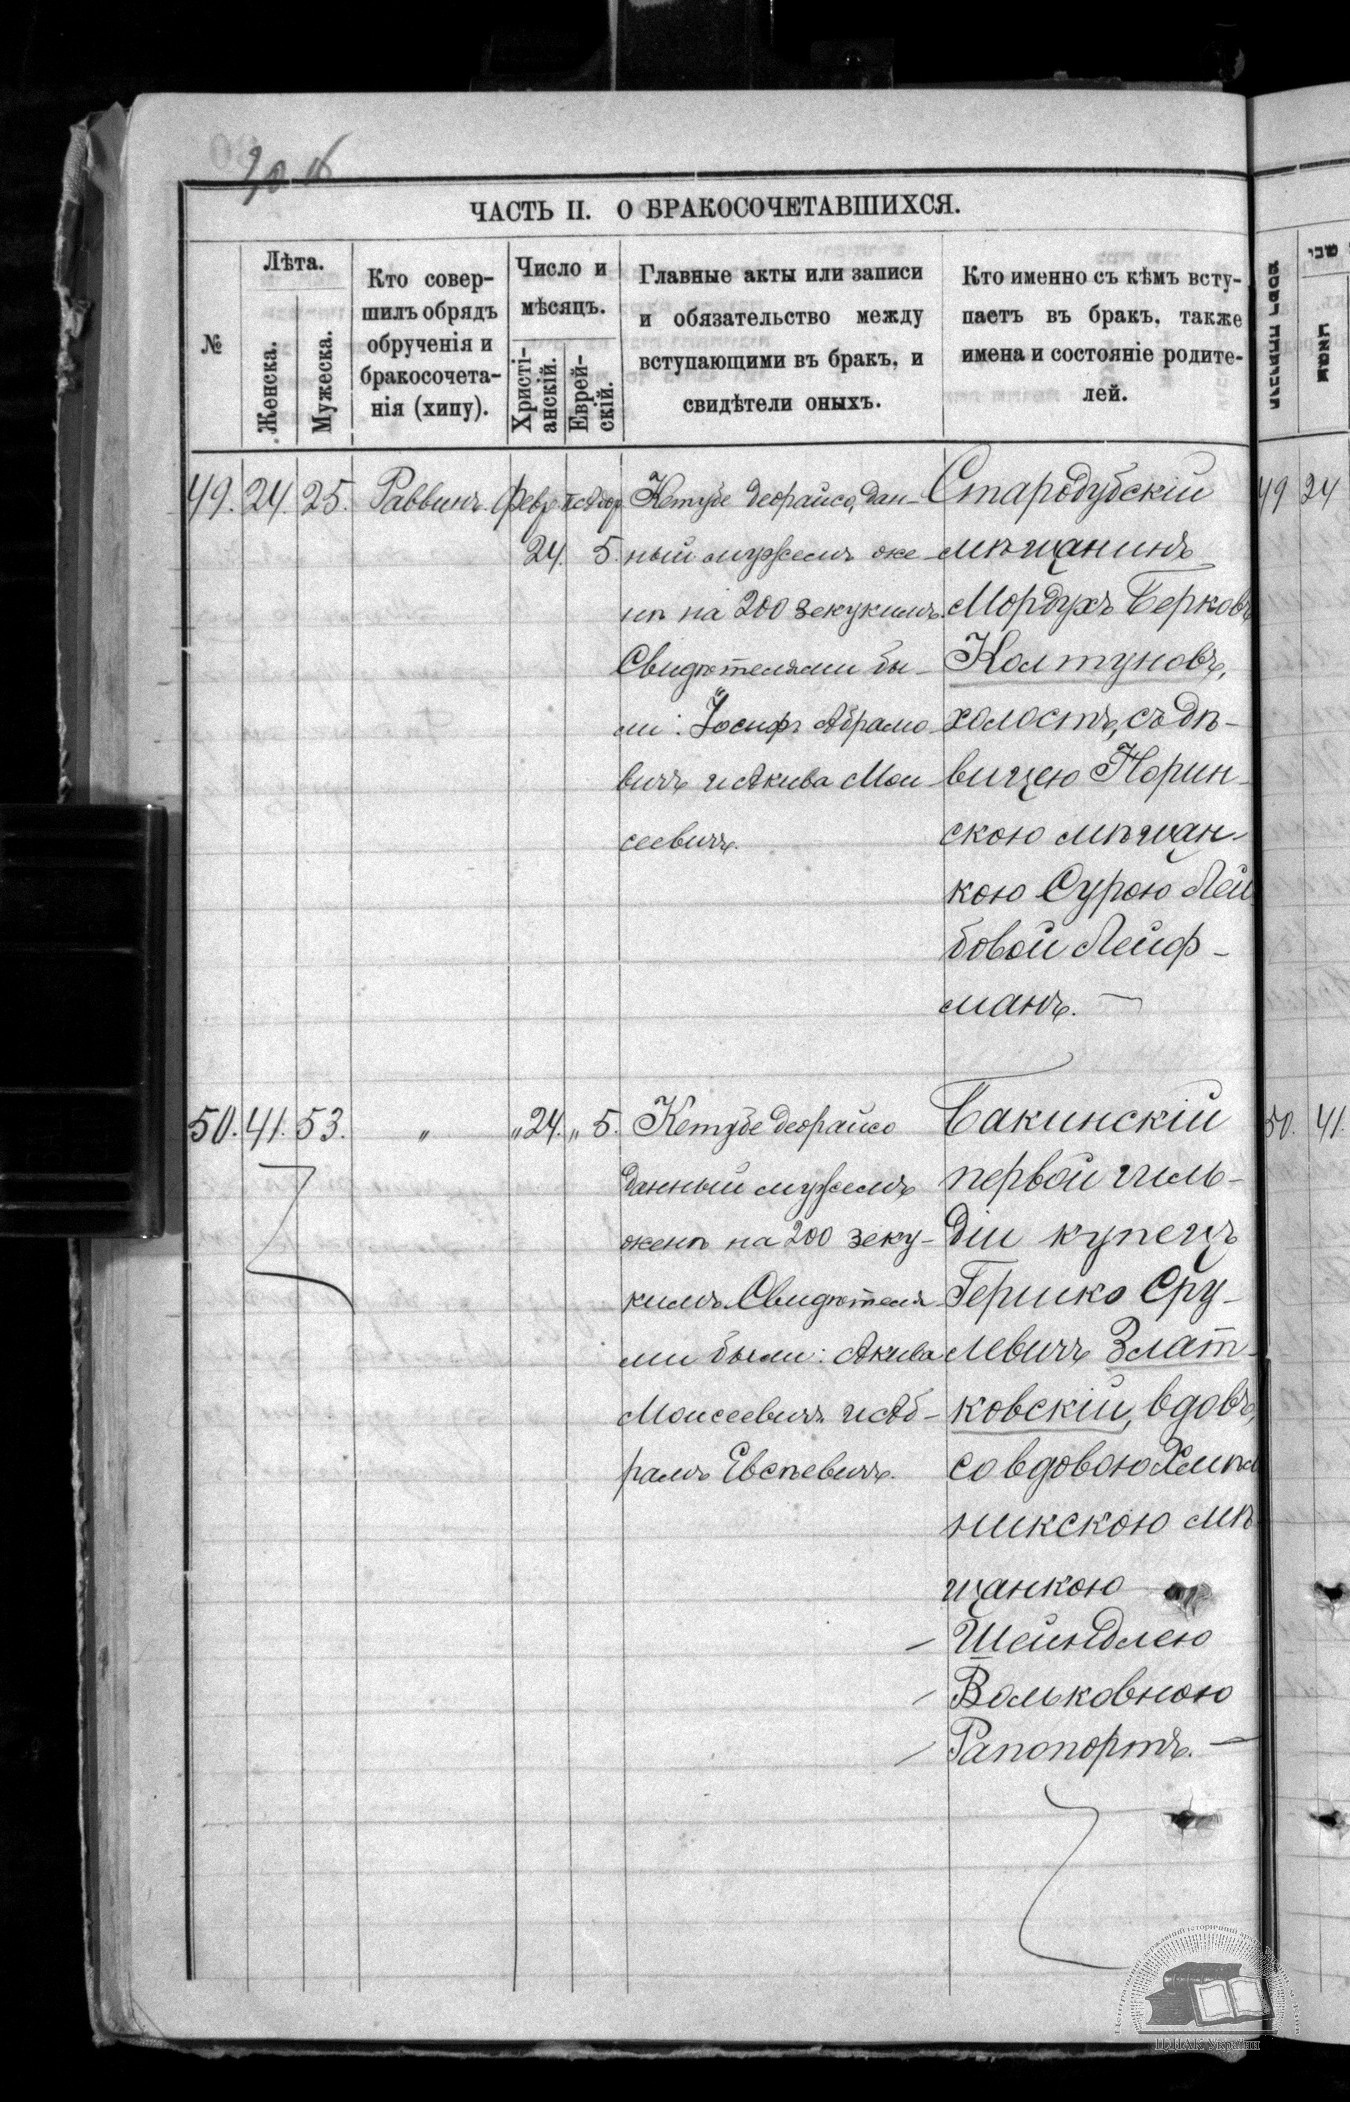 90 об
ЧАСТЬ II. О БРАКОСОЧЕТАВШИХСЯ.
№
Лѣта.
Женска.
Мужеска.
Кто совер-
шилъ обрядъ
обрученія и
бракосочета-
нія (хипу).
Число и
мѣсяцъ.
Христі-
анскій.
Еврей-
скій.
Главные акты или записи
и обязательство между
вступающими въ бракъ, и
свидѣтели оныхъ.
Кто именно съ кѣмъ всту-
паетъ въ бракъ, также
имена и состояніе родите-
лей.
49. 24. 25. Раввинъ. Февр.
24. 5.
Кетубе деорайсо, дан-
ный мужемъ же
нѣ на 200 зекукимъ.
Свидѣтелями бы-
ли: Іосифъ Абрамо
вичъ и Акива Мои
сеевичъ.
Стародубскій
мѣщанинъ
Мордухъ Берковъ
Колтуновъ,
холостъ, съ дѣ-
вицею Норин-
скою мѣщан-
кою Сурою Лей
бовой Лейф-
манъ. —
50. 41. 53. „ „ 24. „ 5.
Кетубе деорайсо
данный мужемъ
женѣ на 200 зеку-
кимъ. Свидѣтеля-
ми были: Акива
Моисеевичъ и Аб-
рамъ Евсѣевичъ.
Бакинскій
первой гиль-
діи купецъ
Гершко Сру-
левичъ Злат-
ковскій, вдовъ,
со вдовою Хмѣль
никскою мѣ
щанкою
Шейндлею
Вольковною
Рапопортъ. —
49 24
50. 41.
ЦДІАК України